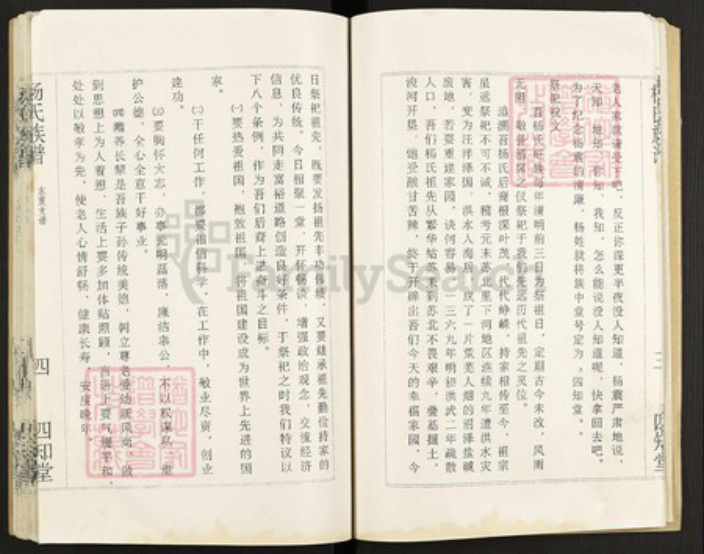 老人家就请受下吧，反正你深更半夜没人知道，杨震严肃地说，
天知、地知、你知、我知，怎么能说没人知道呢，快拿回去吧。
为了纪念杨震的清廉，杨姓就将族中堂号定为“四知堂”。
祭祀祝文
吾杨氏旺族每年清明前三日为祭祖日，定期古今未改，风雨
无阻，敬备酒席之仪祭祀于我们先远历代祖先之灵位。
追溯吾杨氏后裔根深叶茂，代代峥嵘，持家相传至今，祖宗
虽远祭祀不可不诚，稽考元末苏北里下河地区连续九年遭洪水灾
害，变为汪洋泽国，洪水入海后，成了一片荒芜人烟的沼泽盐碱
废地，若要重建家园，谈何容易。一三六九年明初洪武二年疏散
人口，吾们杨氏祖先从繁华姑苏来到苏北不畏艰辛，叠基掘土，
浚河开垦，饱受酸甘苦辣，终于开辟出吾们今天的幸福家园，今
三
四知堂
杨氏族谱
日祭祀祖先，既要发扬祖先丰功伟绩，又要继承祖先勤俭持家的
优良传统。今日相聚一堂，开怀畅谈，增强政治观念，交流经济
信息，为共同走富裕道路创造良好条件，于祭祀之时我们特议以
下八个条例，作为吾们后裔上进奋斗之目标。
㈠要热爱祖国，报效祖国，将祖国建设成为世界上先进的国
家。
㈡干任何工作，都要相信科学，在工作中，敬业尽责，创业
建功。
㈢要胸怀大志，办事光明磊落，廉洁奉公，不以权谋私，维
护公德，全心全意干好事业。
㈣赡养长辈是吾族子孙传统美德，树立尊老爱幼新风尚，做
到思想上为人着想，生活上要多加体贴照顾，言语上要气慢平和，
处处以敬孝为先，使老人心情舒畅，健康长寿，安度晚年。
杨氏族谱
四
四知堂
FamilySearch